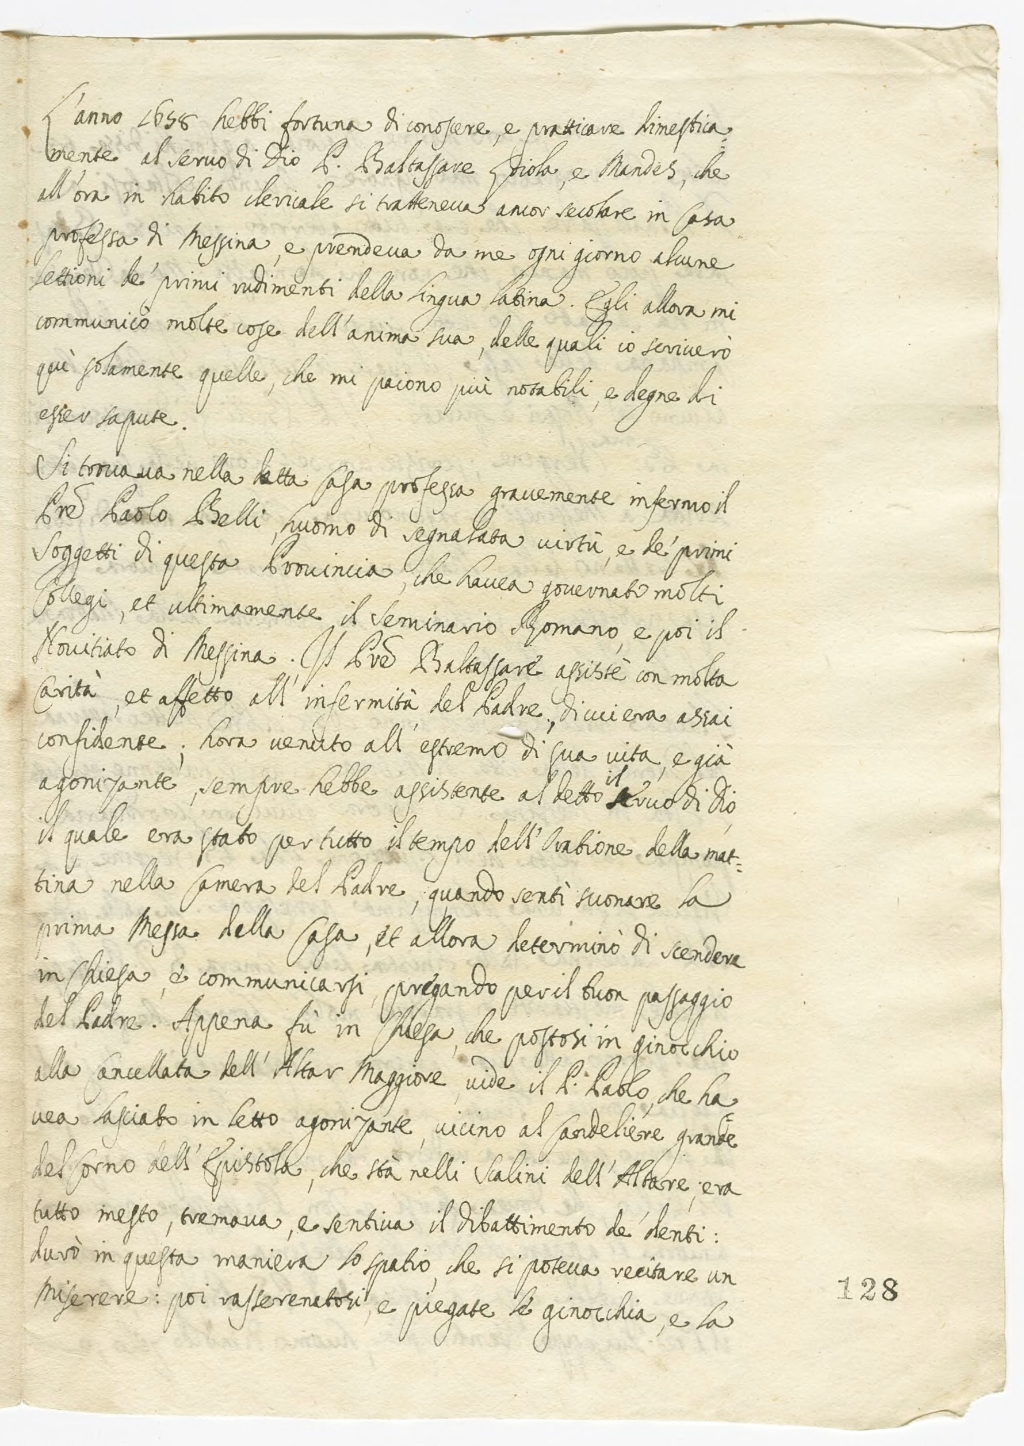 L'anno 1658 hebbi fortuna di conoscere, e pratticare dimestica=
mente al servo di Dio P. Baltassare Loiola, e Mandes, che
all'ora in habito clericale si tratteneva ancor secolare in Casa
professa di Messina, e prendeva da me ogni giorno alcune
lettioni de' primi rudimenti della lingua latina. Egli allora mi
communicò molte cose dell'anima sua, delle quali io scriverò
quì solamente quelle, che mi paiono più notabili, e degne di
esser sapute.
Si trovava nella detta Casa professa gravemente infermo il
Pre Paolo Belli, huomo di segnalata virtù, e de' primi
Soggetti di questa Provincia, che havea governato molti
Collegi, et ultimamente il Seminario Romano, e poi il
Novitiato di Messina. Il Pre Baltassare assistè con molta
Carità, et affetto all'infermità del Padre, di cui era assai
confidente; hora venuto all'estremo di sua vita, e già
agonizante, sempre hebbe assistente al detto il servo di Dio,
il quale era stato per tutto il tempo dell'Oratione della mat=
tina nella Camera del Padre, quando sentì suonare la
prima Messa della Casa, et allora determinò di scendere
in Chiesa, e communicarsi, pregando per il buon passaggio
del Padre. Appena fù in Chiesa, che postosi in ginocchio
alla Cancellata dell'Altar Maggiore, vide il P. Paolo, che ha=
vea lasciato in letto agonizante, vicino al Candeliere grande
del Corno dell'Epistola, che stà nelli Scalini dell'Altare, era
tutto mesto, tremava, e sentiva il dibattimento de' denti:
durò in questa maniera lo spatio, che si poteva recitare un
Miserere: poi rasserenatosi, e piegate le ginocchia, e la
128